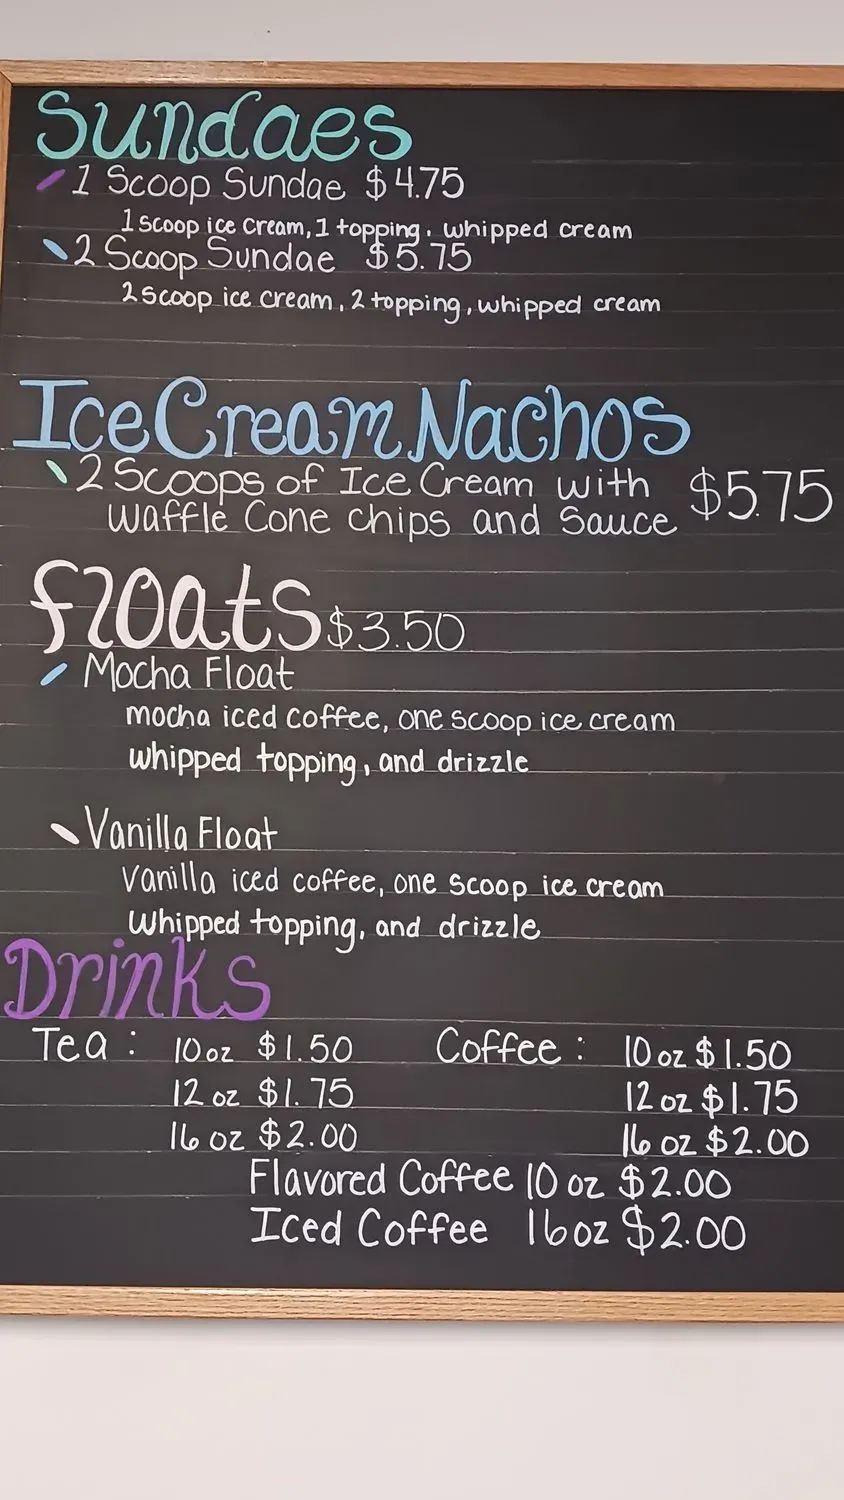 Sundaes
1 Scoop Sundae $4.75
1 scoop ice cream, 1 topping, whipped cream
2 Scoop Sundae $5.75
2 scoop ice cream, 2 topping, whipped cream
Ice Cream Nachos
2 Scoops of Ice Cream with $5.75
Waffle Cone Chips and Sauce
Floats $3.50
Mocha Float
mocha iced coffee, one scoop ice cream
whipped topping, and drizzle
Vanilla Float
Vanilla iced coffee, one scoop ice cream
Whipped topping, and drizzle
Drinks
Tea : 10 oz $1.50 Coffee : 10 oz $1.50
12 oz $1.75 12 oz $1.75
16 oz $2.00 16 oz $2.00
Flavored Coffee 10 oz $2.00
Iced Coffee 16 oz $2.00